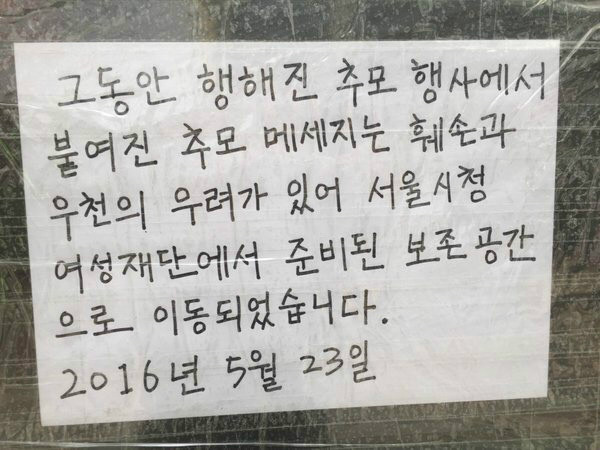 그동안 행해진 추모 행사에서
붙여진 추모 메세지는 훼손과
우천의 우려가 있어 서울시청
여성재단에서 준비된 보존공간
으로 이동되었습니다.
2016년 5월 23일